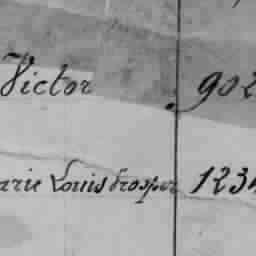 Victor 902
arie Louis Prosper 1234